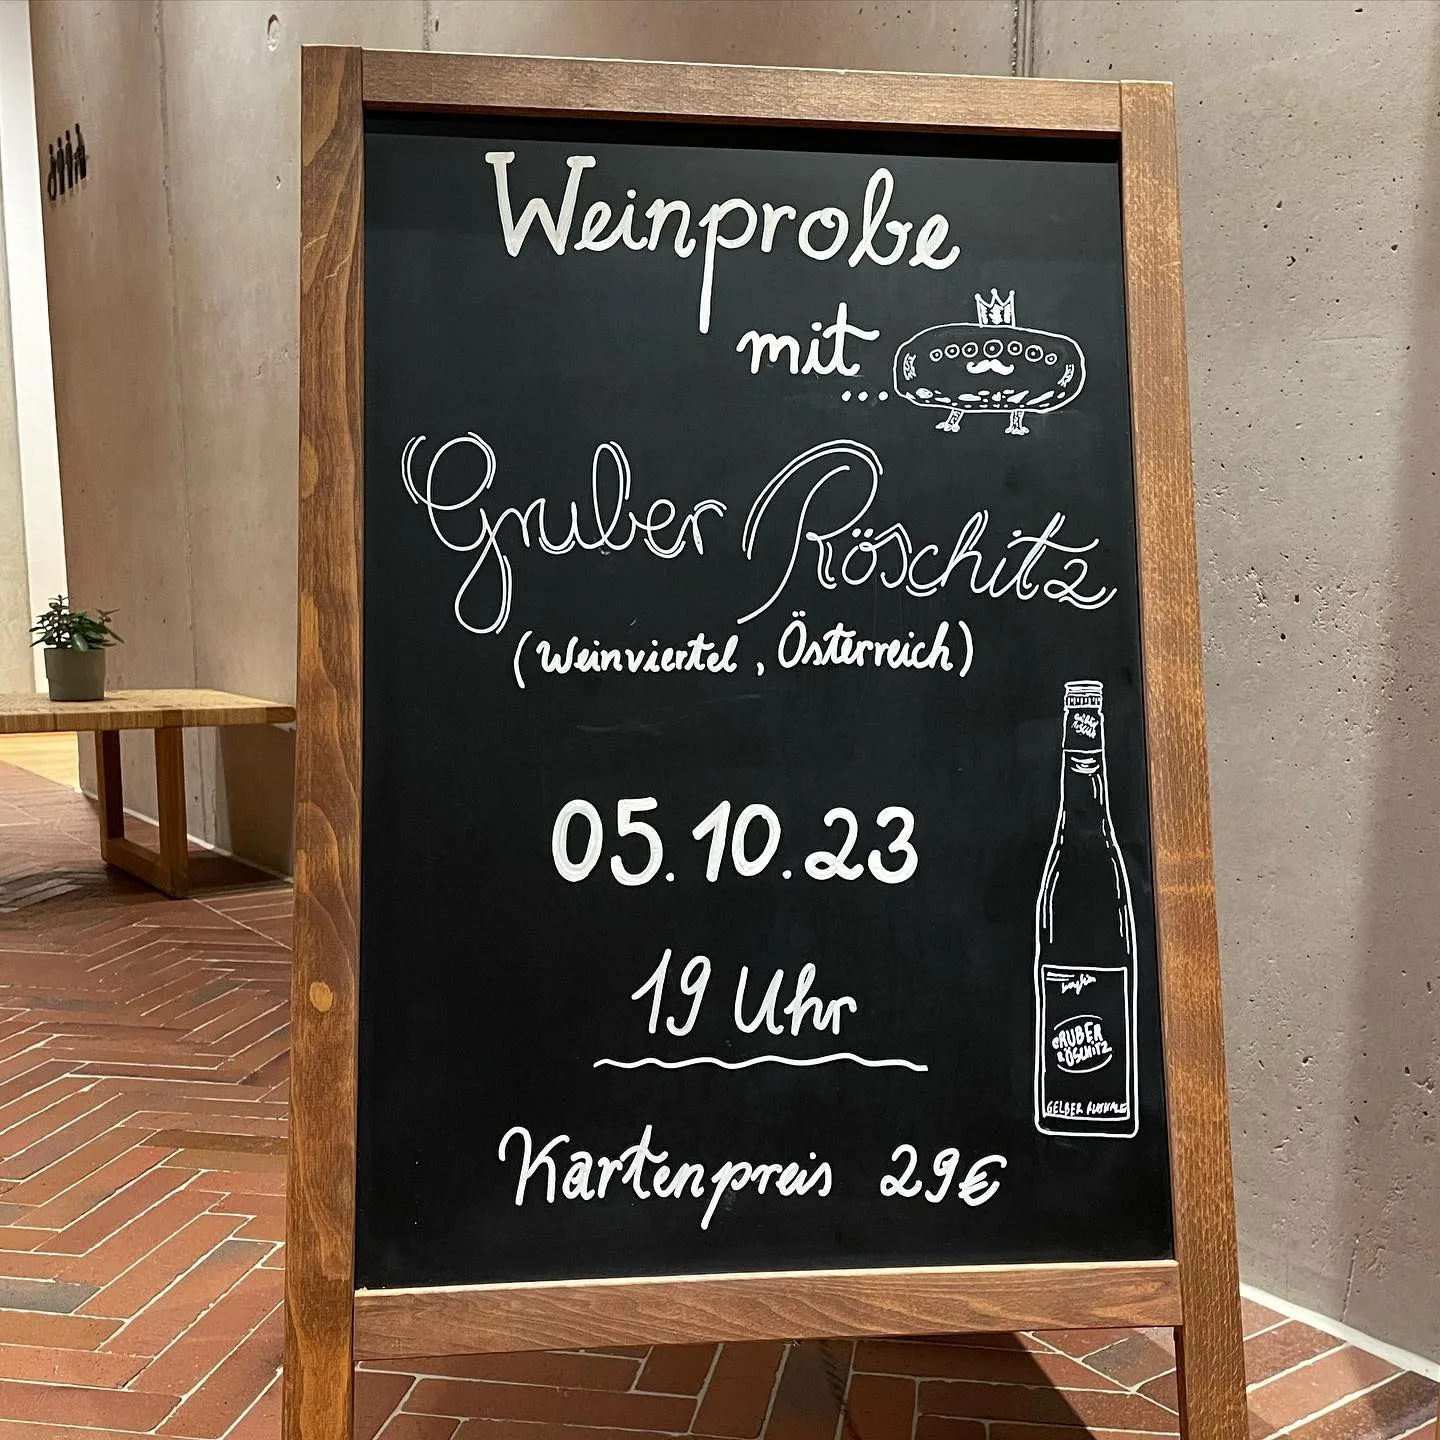 Weinprobe
mit
...
Gruber Röschitz
(Weinviertel, Österreich)
05.10.23
19 Uhr
GRUBER
RÖSCHITZ
GELBER
Kartenpreis 29€